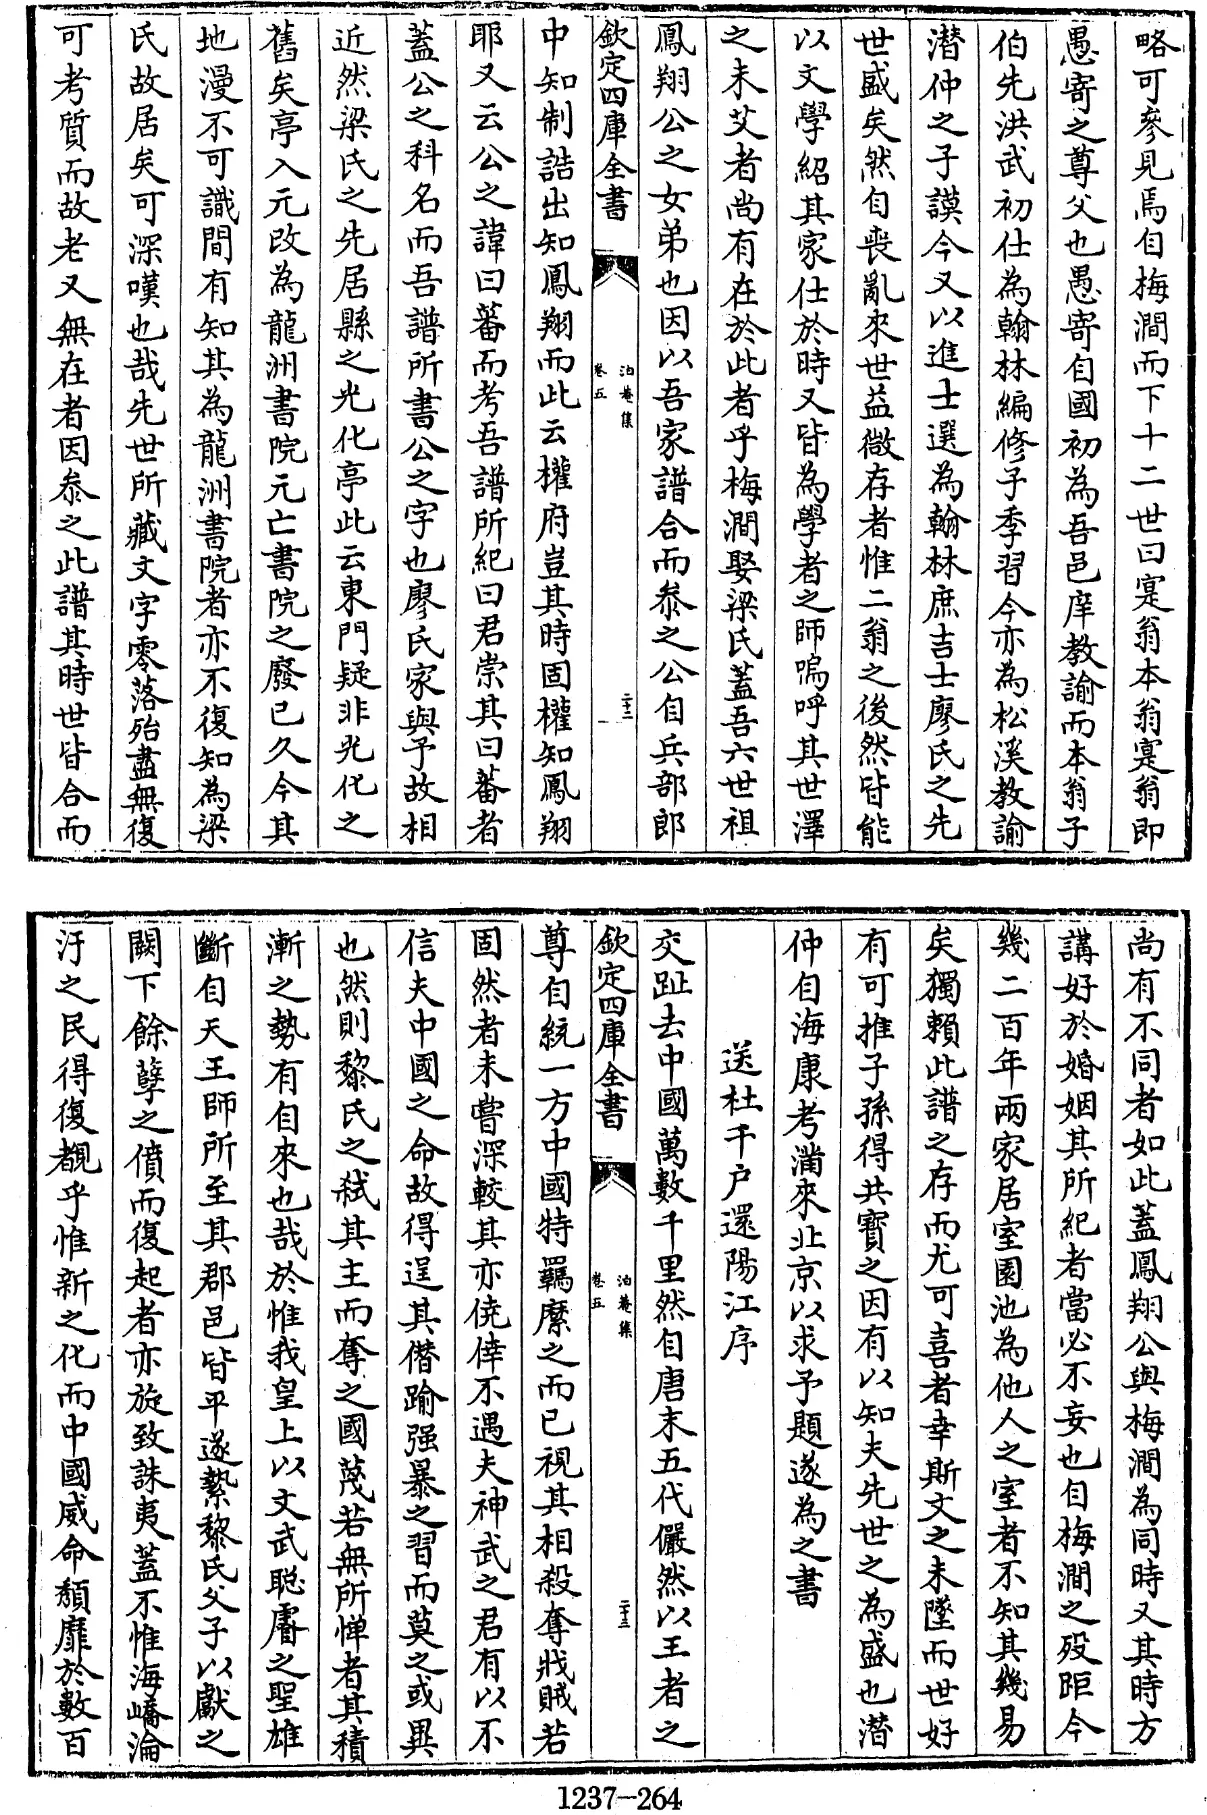 略可參見焉自梅澗而下十二世曰寔翁本翁寔翁即
愚寄之尊父也愚寄自國初為吾邑庠教諭而本翁子
伯先洪武初仕為翰林編修子季習今亦為松溪教諭
潛仲之子謨今又以進士選為翰林庶吉士廖氏之先
世盛矣然自喪亂來世益微存者惟二翁之後然皆能
以文學紹其家仕於時又皆為學者之師嗚呼其世澤
之未艾者尚有在於此者乎梅澗娶梁氏蓋吾六世祖
鳳翔公之女弟也因以吾家譜合而叅之公自兵部郎
欽定四庫全書
泊菴集
卷五
二十二
中知制誥出知鳳翔而此云權府豈其時固權知鳳翔
耶又云公之諱曰蕃而考吾譜所紀曰君崇其曰蕃者
蓋公之科名而吾譜所書公之字也廖氏家與予故相
近然梁氏之先居縣之光化亭此云東門疑非光化之
舊矣亭入元改為龍洲書院元亡書院之廢已久今其
地漫不可識間有知其為龍洲書院者亦不復知為梁
氏故居矣可深嘆也哉先世所藏文字零落殆盡無復
可考質而故老又無在者因叅之此譜其時世皆合而
尚有不同者如此蓋鳳翔公與梅澗為同時又其時方
講好於婚姻其所紀者當必不妄也自梅澗之歿距今
幾二百年兩家居室園池為他人之室者不知其幾易
矣獨賴此譜之存而尤可喜者幸斯文之未墜而世好
有可推子孫得共寶之因有以知夫先世之為盛也潛
仲自海康考滿來北京以求予題遂為之書
送杜千户還陽江序
交趾去中國萬數千里然自唐末五代儼然以王者之
欽定四庫全書
泊菴集
卷五
二十三
尊自統一方中國特羈縻之而已視其相殺奪戕賊若
固然者未嘗深較其亦僥倖不遇夫神武之君有以不
信夫中國之命故得逞其僭踰强暴之習而莫之或異
也然則黎氏之弑其主而奪之國蔑若無所憚者其積
漸之勢有自來也哉於惟我皇上以文武聰睿之聖雄
斷自天王師所至其郡邑皆平遂縶黎氏父子以獻之
闕下餘孽之僨而復起者亦旋致誅夷蓋不惟海嶠淪
汙之民得復覩乎惟新之化而中國威命頽靡於數百
1237—264